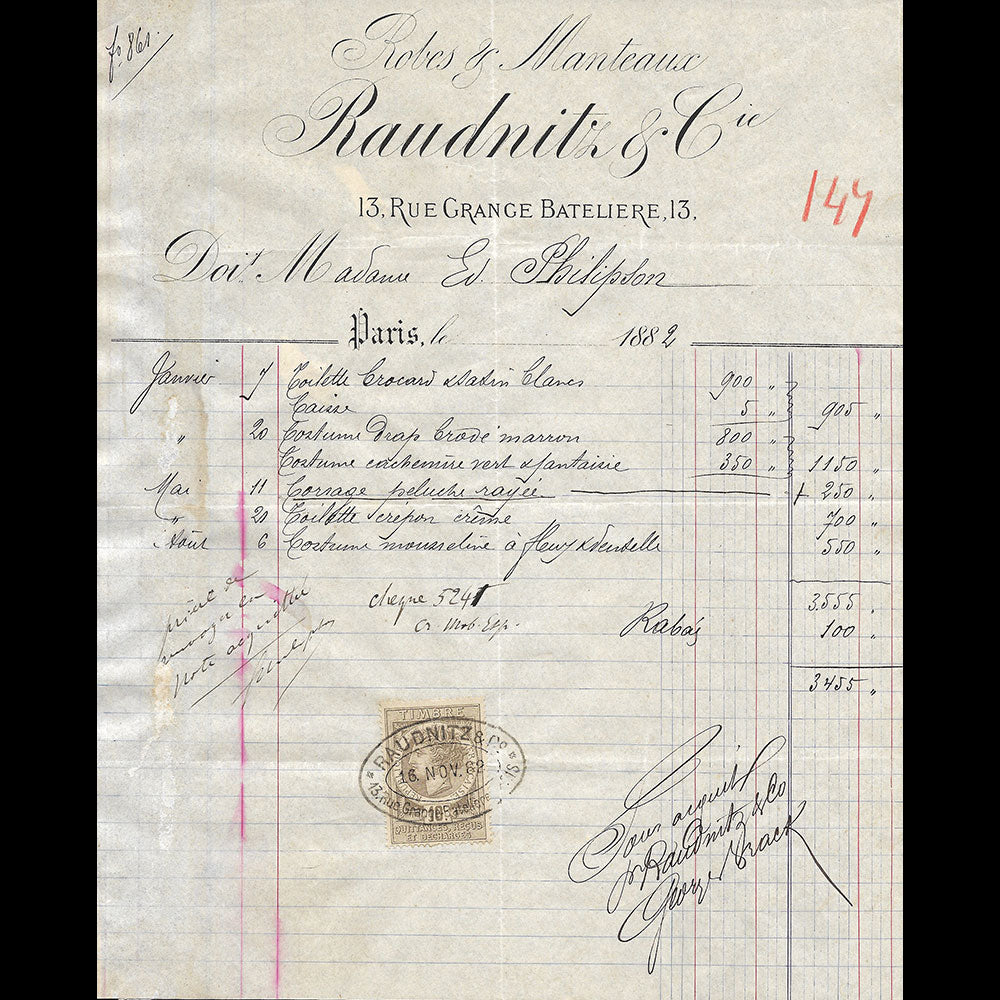 fo. 861.
Robes & Manteaux
Raudnitz & Cie
147
13, RUE GRANGE BATELIERE, 13.
Doit Madame Ed. Philipson
Paris, le 1882
Janvier 7 Toilette brocard & satin blancs 900 "
Caisse 5 " 905 "
" 20 Costume drap brodé marron 800 "
Costume cachemire vert & fantaisie 350 " 1150 "
Mai 11 Corsage peluche rayée + 250 "
" 21 Toilette crepon crême 700 "
Août 6 Costume mousseline à fleurs & dentelle 550 "
3.555 "
Rabais 100 "
3455 "
cheque 5241
Cr. Mob. Esp.
prière de
renvoyer la
note acquittée
TIMBRE
RAUDNITZ & Co
16 NOV. 82
13, rue Grange Bateliere
10
QUITTANCES, REÇUS
ET DÉCHARGES
Pour acquit
pr Raudnitz & Co
George